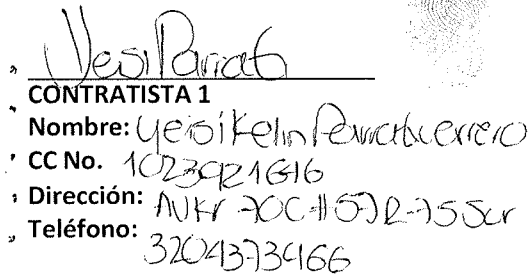 Yesi Parra G
CONTRATISTA 1
Nombre: Yesikelin Parra Guerrero
CC No. 1023921616
Dirección:
Teléfono: 3204373466